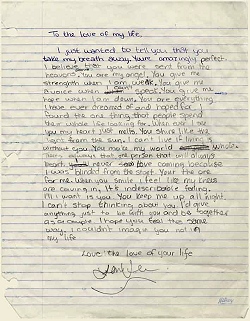 To the love of my life,
I just wanted to tell you that you
take my breath away. You're amazingly perfect.
I believe that you were sent from the
heavens. You are my angel. You give me
strenghth when I am weak. You give me
a voice when I can't speak. You give me
hope when I am down. You are everything
I have ever dreamed of and hoped for
found the one thing that people spend
their whole life looking for. When ever I see
you my heart just melts. You shine like the
light from the sun. I can't live if
without you. You make my world whole
Theres always that person that will always
heart never love coming because
I was blinded from the start. Your the one
for me. When you smile I feel like my knees
are caving in. It's indescribable feeling.
All I want is you. You keep me up all night
I can't stop thinking about you. I'd give
anything just to be with you and be together
as a couple. I hope you feel the same
way. I couldnt imagin you not in
my life
Love: the love of your life